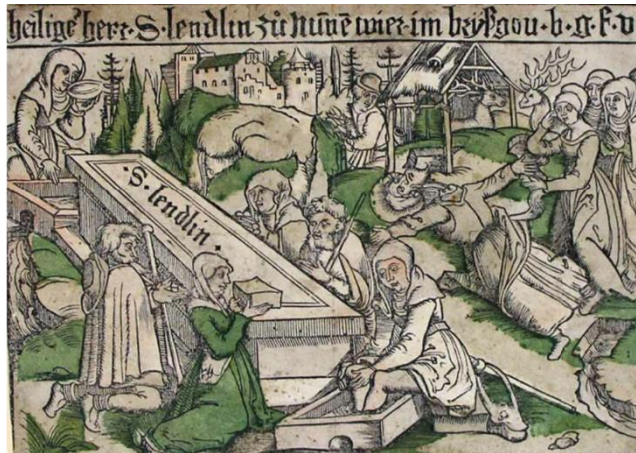 heilige herr · S · lendlin zů wier · im bryßgou · b · g · f · v
· S · lendlin ·